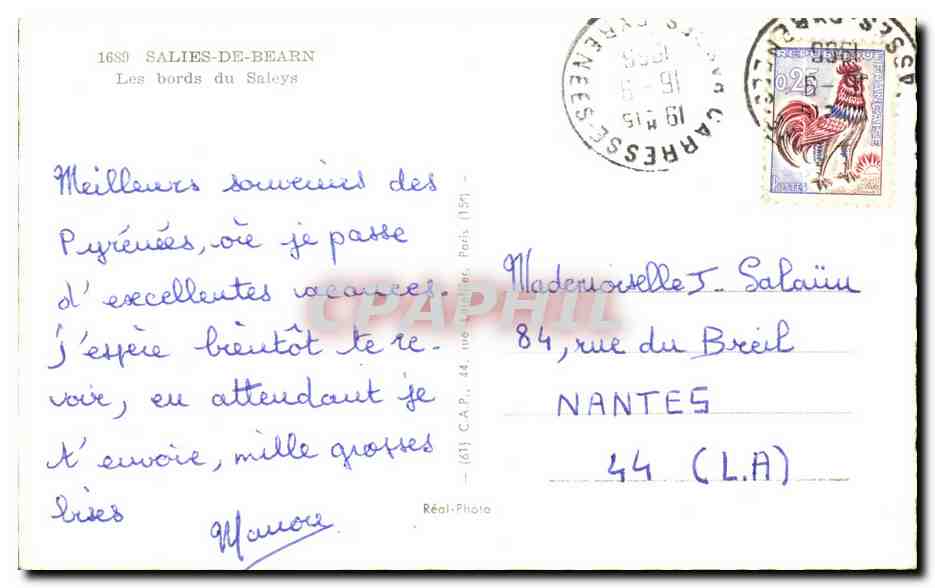 1689 SALIES-DE-BEARN
Les bords du Saleys
Meilleurs souvenirs des
Pyrénées, où je passe
d'excellentes vacances.
J'espère bientôt te re-
voir, en attendant je
t'envoie, mille grosses
bises
(61) C.A.P., 44, rue Paris (15e)
Réal-Photo
CARRESSE
19 H 15
16 - 9
REPUBLIQUE FRANÇAISE
0,25
POSTES
Mademoiselle J. Salaün
84, rue du Breil
NANTES
44 (L.A)
CPAPHIL